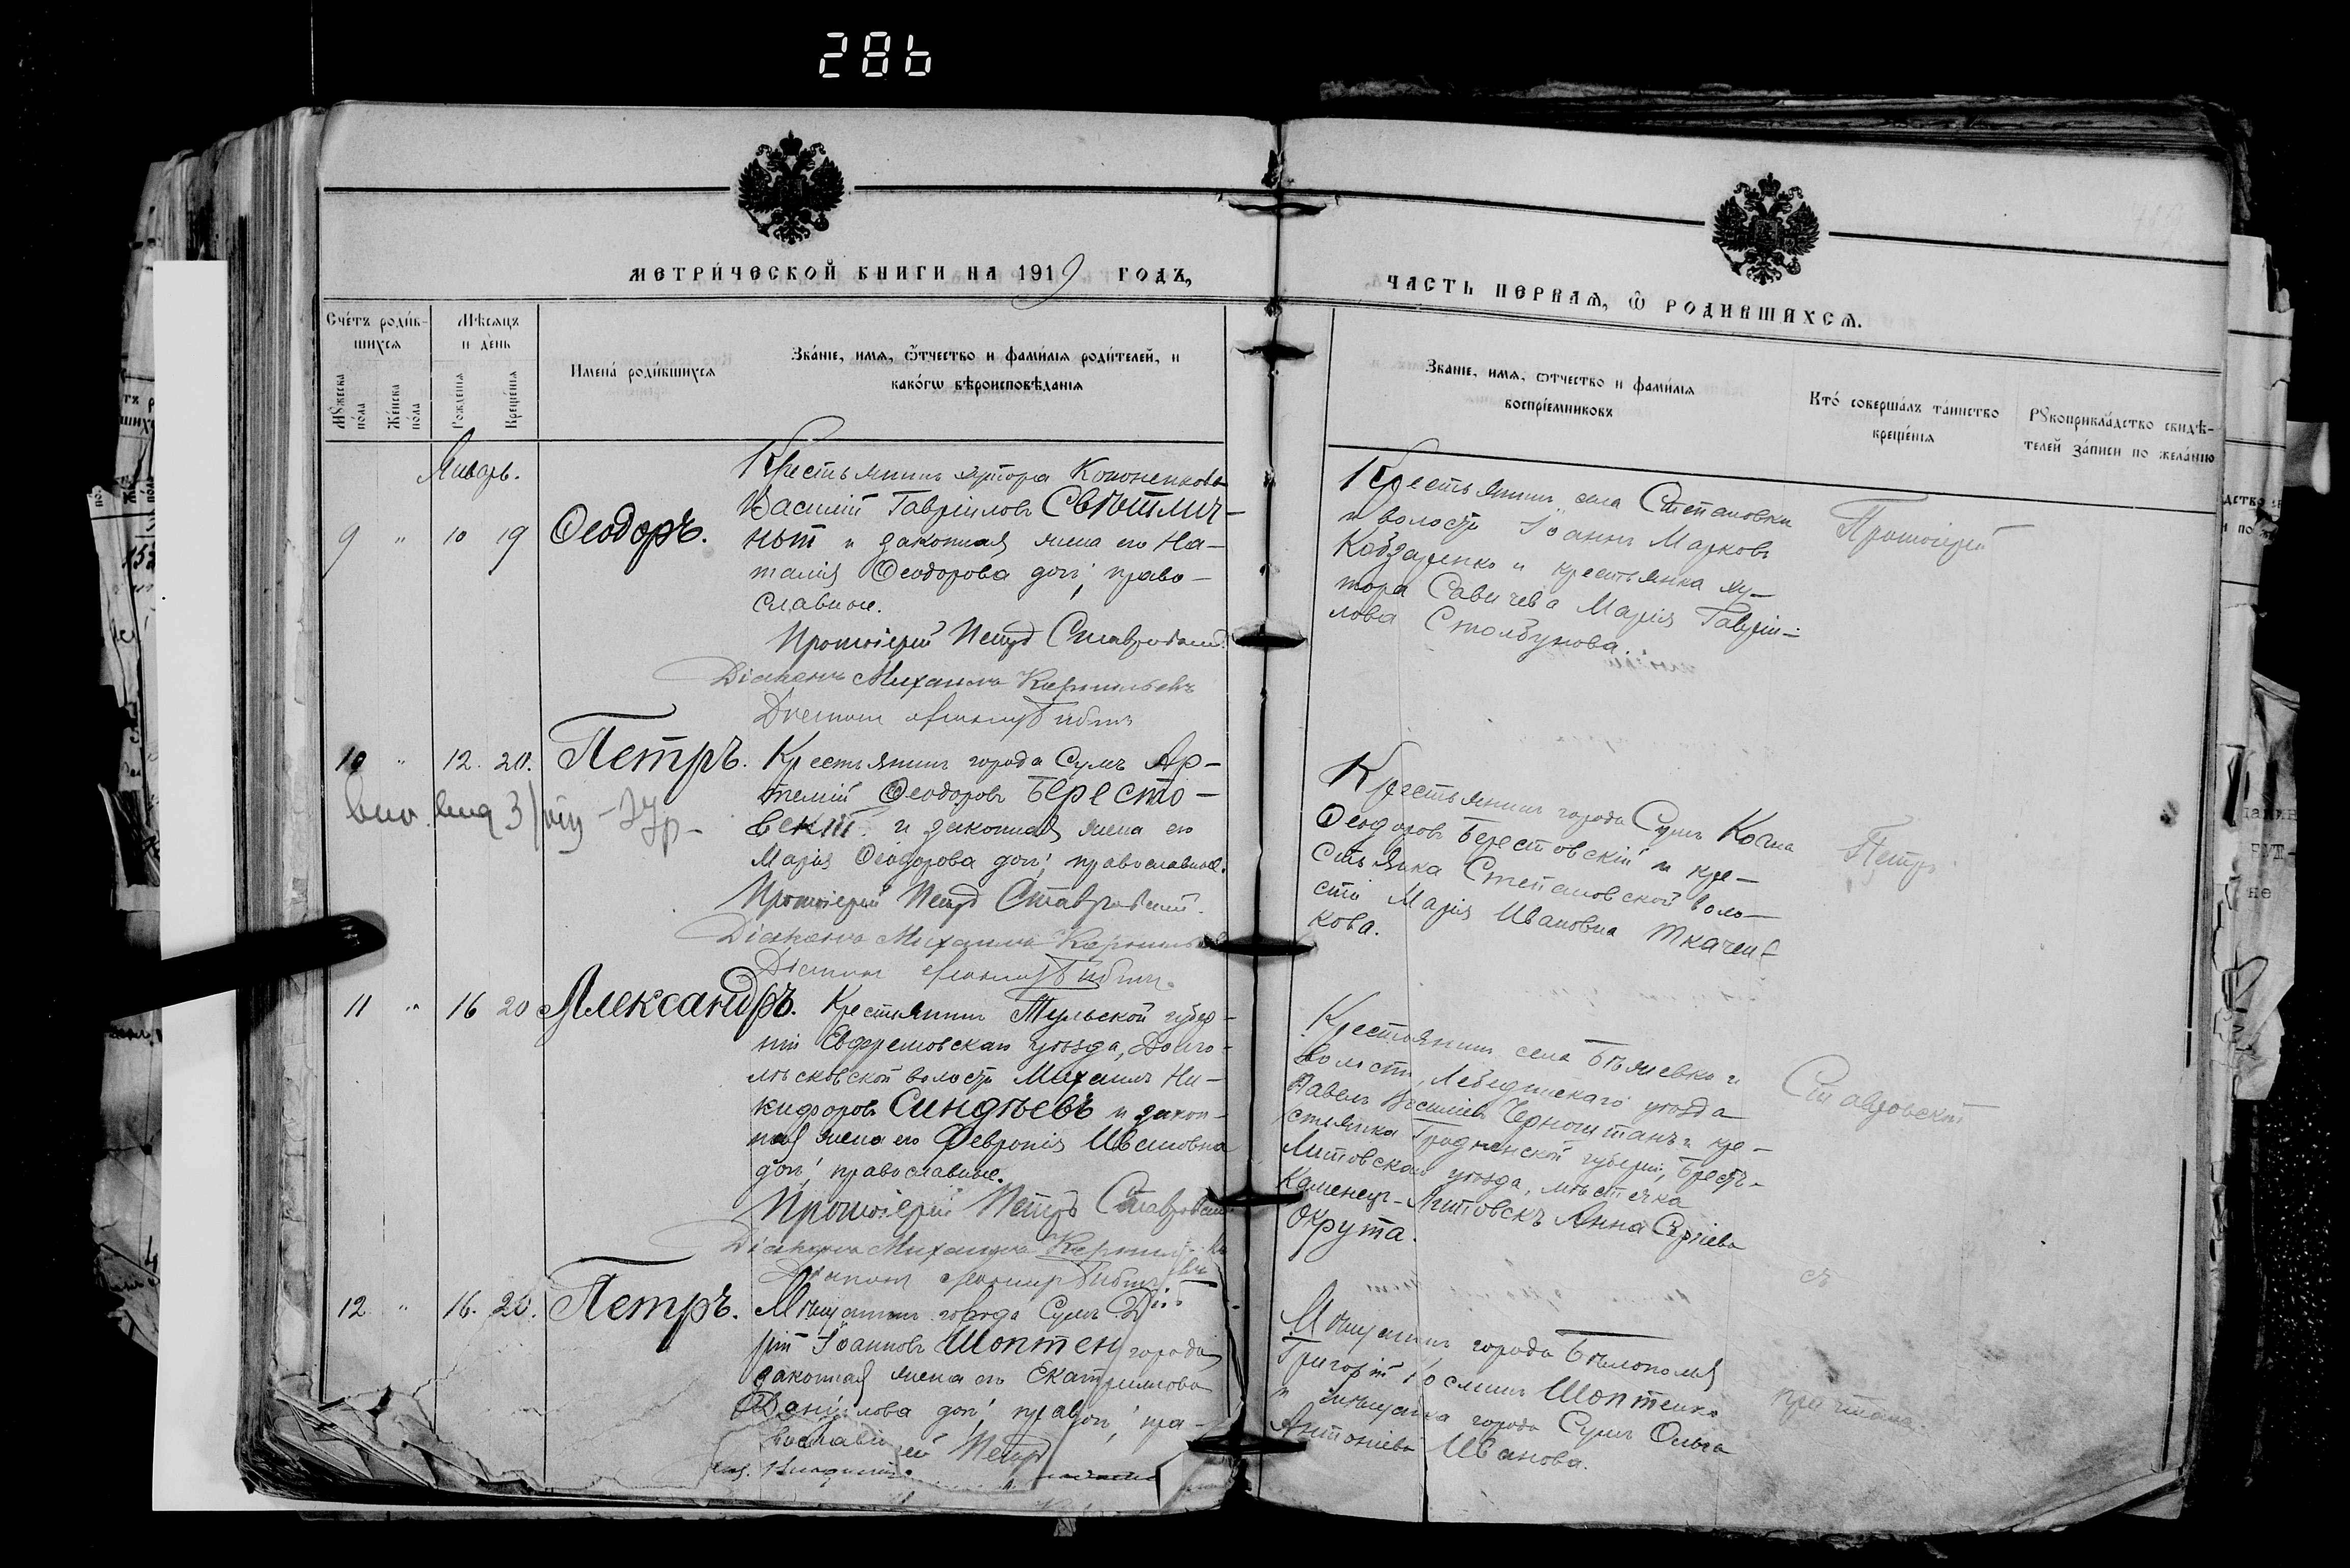 286
МЕТРИ́ЧЕСКОЙ КНИГИ НА 1919 ГОДЪ,
ЧАСТЬ ПЕРВАЯ, Ѿ РОДИВШИХСЯ.
Сче́тъ роди́в-
шихся
Мѣсяцъ
и де́нь
Мꙋжеска по́ла
Же́нска по́ла
Рожденїя
Креще́нїя
Имена̀ роди́вшихся
Зва́нїе, имя, ѻ҆́тчество и фами́лїя роди́телей, и
како́гѡ вѣроисповѣ́данїя
Зва́нїе, имя, ѻтчество и фами́лїя
воспрїе́мниковъ
Кто̀ соверша́лъ та́инство
креще́нїя
Рꙋкоприкла́дство свидѣ́-
телей за́писи по жела́нїю
Январь.
9 " 10 19 Ѳеодоръ.
Крестьянинъ хутора Кононенкова
Василій Гавріиловъ Свѣтлич-
ный и законная жена его На-
талія Ѳеодорова, право-
славные.
Протоіерей Петръ Ставровскій
Діаконъ Михаилъ
Крестьянинъ села Степановки
и волости Іоаннъ Марковъ
Кобзаренко и крестьянка ху-
тора Савичева Марія Гавріи-
лова Столбунова.
Протоіерей
10 " 12. 20. Петръ.
Крестьянинъ города Сумъ Ар-
темій Ѳеодоровъ Бересто-
вскій и законная жена его
Марія Ѳеодорова, православные.
Протоіерей Петръ Ставровскій.
Діаконъ Михаилъ
Крестьянинъ города Сумъ Косма
Ѳеодоровъ Берестовскій и кре-
стьянка Степановской воло-
сти Марія Ивановна Ткачен-
кова.
Петръ
11 " 16 20 Александръ.
Крестьянинъ Тульской губер-
ніи Ефремовскаго уѣзда, Долго-
лѣсковской волости Михаилъ Ни-
кифоровъ Синдѣевъ и закон-
ная жена его Февронія Ивановна
православные.
Протоіерей Петръ Ставровскій
Діаконъ Михаилъ
Крестьянинъ села Бѣжевки и
волости, Лебединскаго уѣзда
Павелъ Василіевъ Черноштанъ и кре-
стьянка Гродненской губерніи, Брестъ-
Литовскаго уѣзда, мѣстечка
Каменецъ-Литовскъ Анна Сергіева
Окрута.
Ставровскій
съ
12 " 16. 20. Петръ.
Мѣщанинъ города Сумъ
рій Іоанновъ Шоптен
законная жена его Екатерина
Даніилова
Петръ
Мѣщанинъ города Бѣлополья
Григорій Космин Шоптенко
и мѣщанка города Сумъ Ольга
Антоніева Иванова.
причтомъ